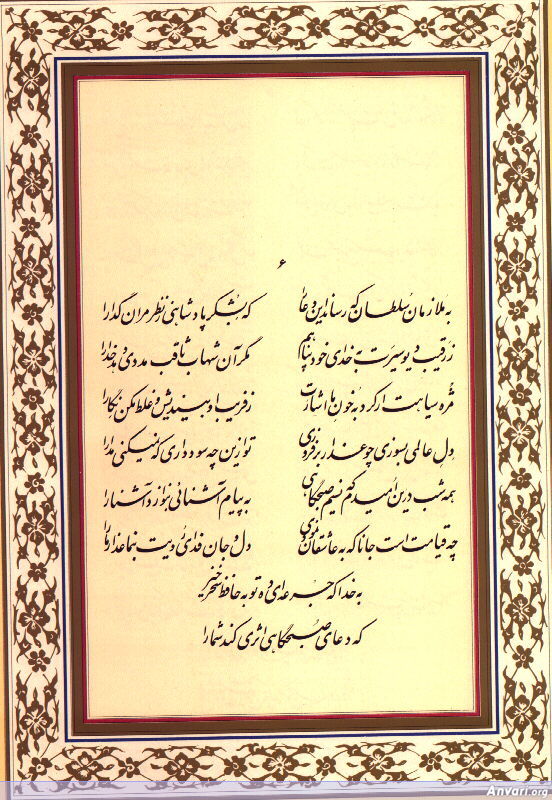 ۶
به ملازمان سلطان که رساند این دعا را که بشکر پادشاهی ز نظر مران گدا را
ز رقیب دیو سیرت به خدای خود پناهم مگر آن شهاب ثاقب مددی دهد خدا را
مژه سیاهت ار کرد به خون ما اشارت ز فریب او بیندیش و غلط مکن نگارا
دل عالمی بسوزی چو عذار برفروزی تو ازین چه سود داری که نمیکنی مدارا
همه شب درین امیدم که نسیم صبحگاهی به پیام آشنائی بنوازد آشنا را
چه قیامت است جانا که به عاشقان نمودی دل و جان فدای رویت بنما عذار ما را
به خدا که جرعه‌ای ده تو به حافظ سحرخیز
که دعای صبحگاهی اثری کند شما را
Anvari.org